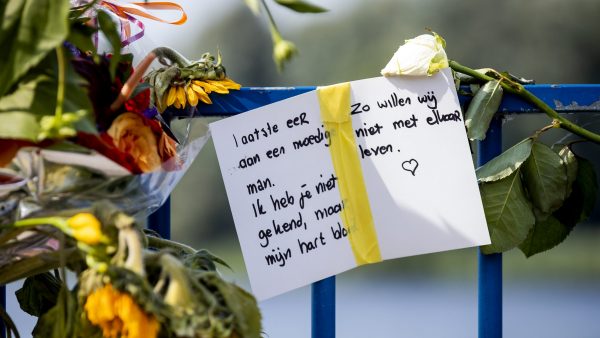 laatste eer
aan een moedig
man.
Ik heb je niet
gekend, maar
mijn hart blo
Zo willen wij
niet met elkaar
leven.